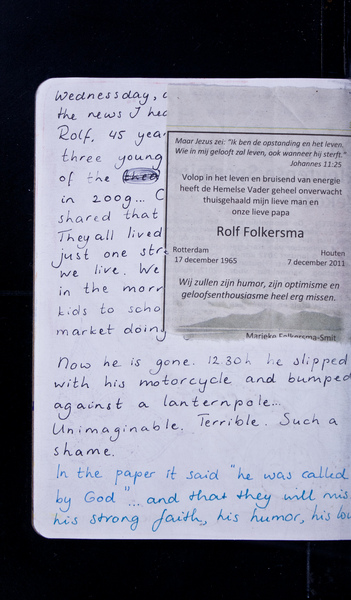 Wednesday,
the news I
Rolf, 45
three young
of the
in 2009...
shared that
They all lived
just one
we live. We
in the
kids to
market doing
Maar Jezus zei: "Ik ben de opstanding en het leven.
Wie in mij gelooft zal leven, ook wanneer hij sterft."
Johannes 11:25
Volop in het leven en bruisend van energie
heeft de Hemelse Vader geheel onverwacht
thuisgehaald mijn lieve man en
onze lieve papa
Rolf Folkersma
Rotterdam Houten
17 december 1965 7 december 2011
Wij zullen zijn humor, zijn optimisme en
geloofsenthousiasme heel erg missen.
Marieke Folkersma-Smit
Now he is gone. 12.30h he slipped
with his motorcycle and bumped
against a lanternpole...
Unimaginable. Terrible. Such a
shame.
In the paper it said "he was called
by God"... and that they will
his strong faith, his humor, his